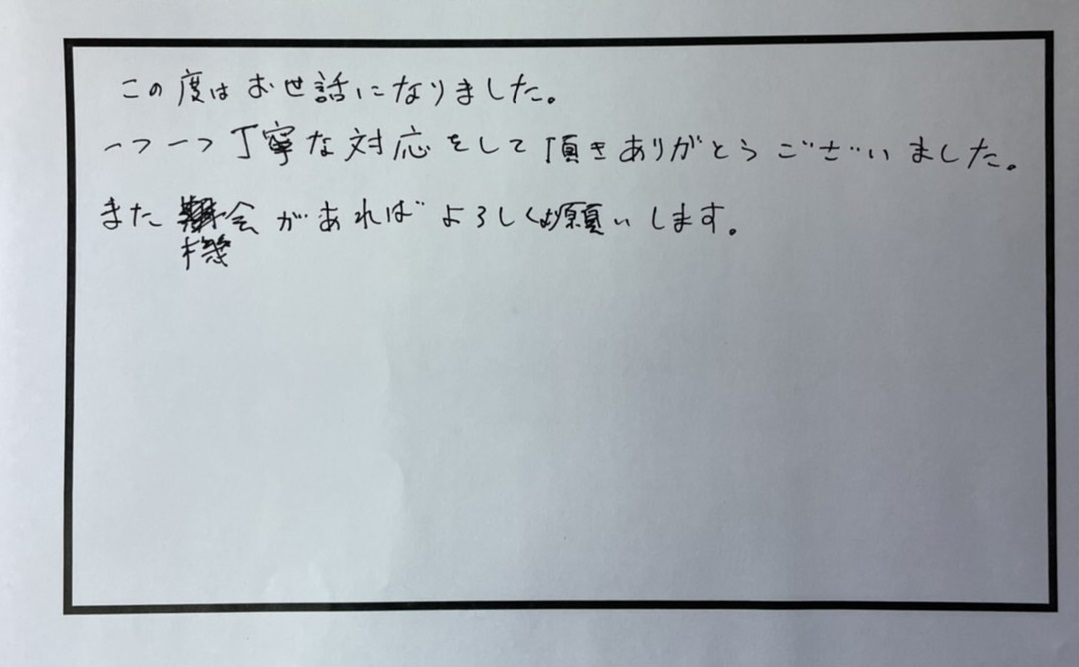 この度はお世話になりました。
一つ一つ丁寧な対応をして頂きありがとうございました。
また機会があればよろしくお願いします。